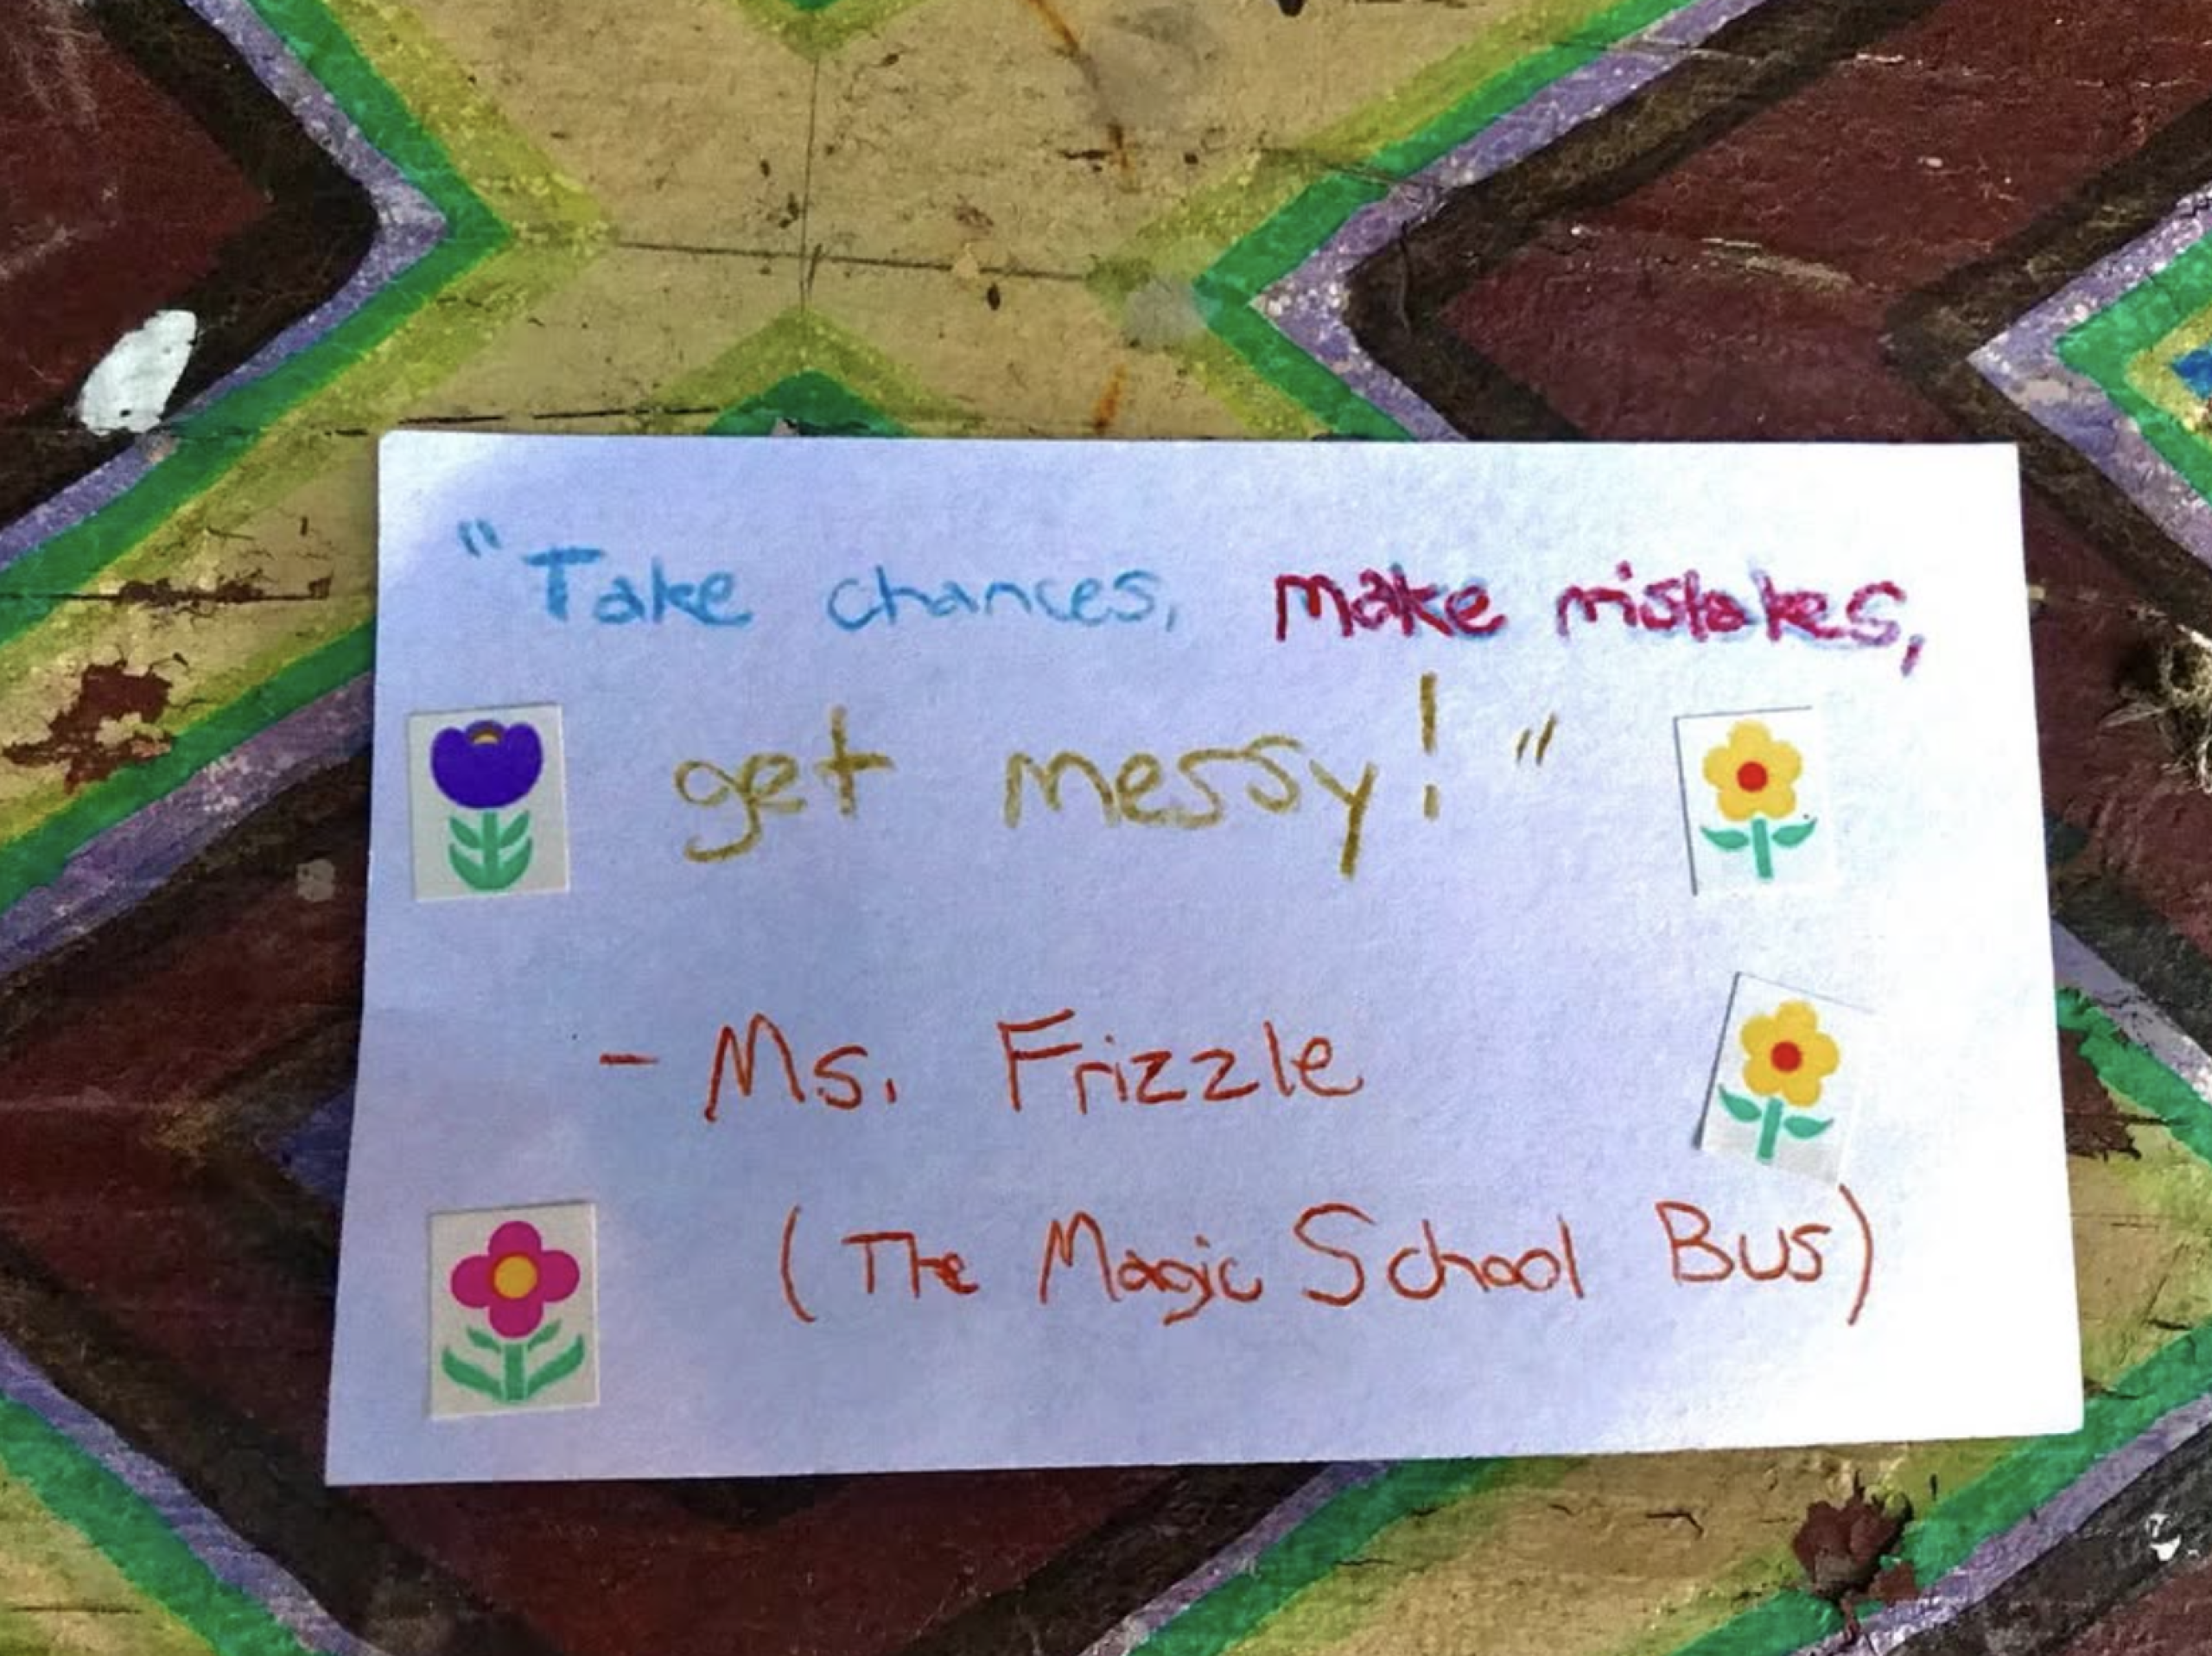 "Take chances, make mistakes,
get messy!"
- Ms. Frizzle
(The Magic School Bus)